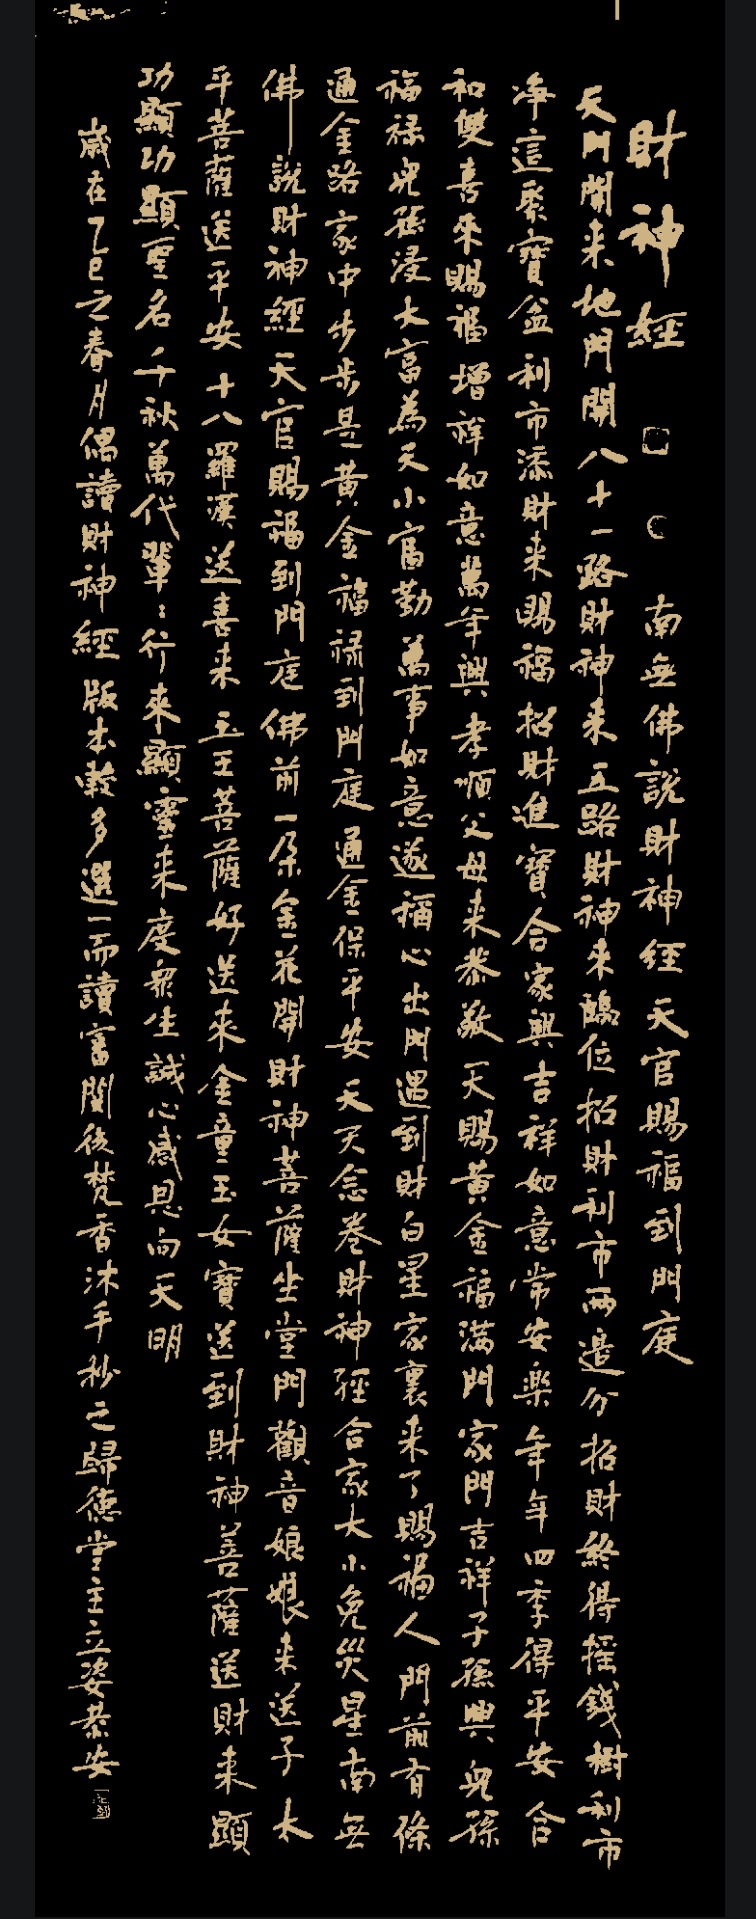 財神經 南無佛說財神經天官賜福到門庭
天門開来地門開八十一路財神来五路財神来臨位招財利市兩邊分招財終得摇錢樹利市
净這聚寳盆利市添財来賜福招財進寳合家興吉祥如意常安樂年年四季得平安合
和雙喜来賜福增祥如意萬年興孝順父母来恭敬天賜黄金福满門家門吉祥子孫興兒孫
福禄兒孫浸大富為天小富勤萬事如意遂稱心出門遇到財白星家裏来了賜福人門前有條
通金路家中步步是黄金福禄到門庭通金保平安天天念卷財神經合家大小免災星南無
佛說財神經天官賜福到門庭佛前一朵金花開財神菩薩坐堂門觀音娘娘来送子太
平菩薩送平安十八羅漢送喜来玉王菩薩好送来金童玉女寳送到財神菩薩送財来顯
功顯功顯聖名千秋萬代輩:行来顯靈来度衆生誠心感恩向天明
歲在乙巳之春月偶讀財神經版本較多選一而讀富閲後焚香沐手抄之歸德堂主立姿恭安